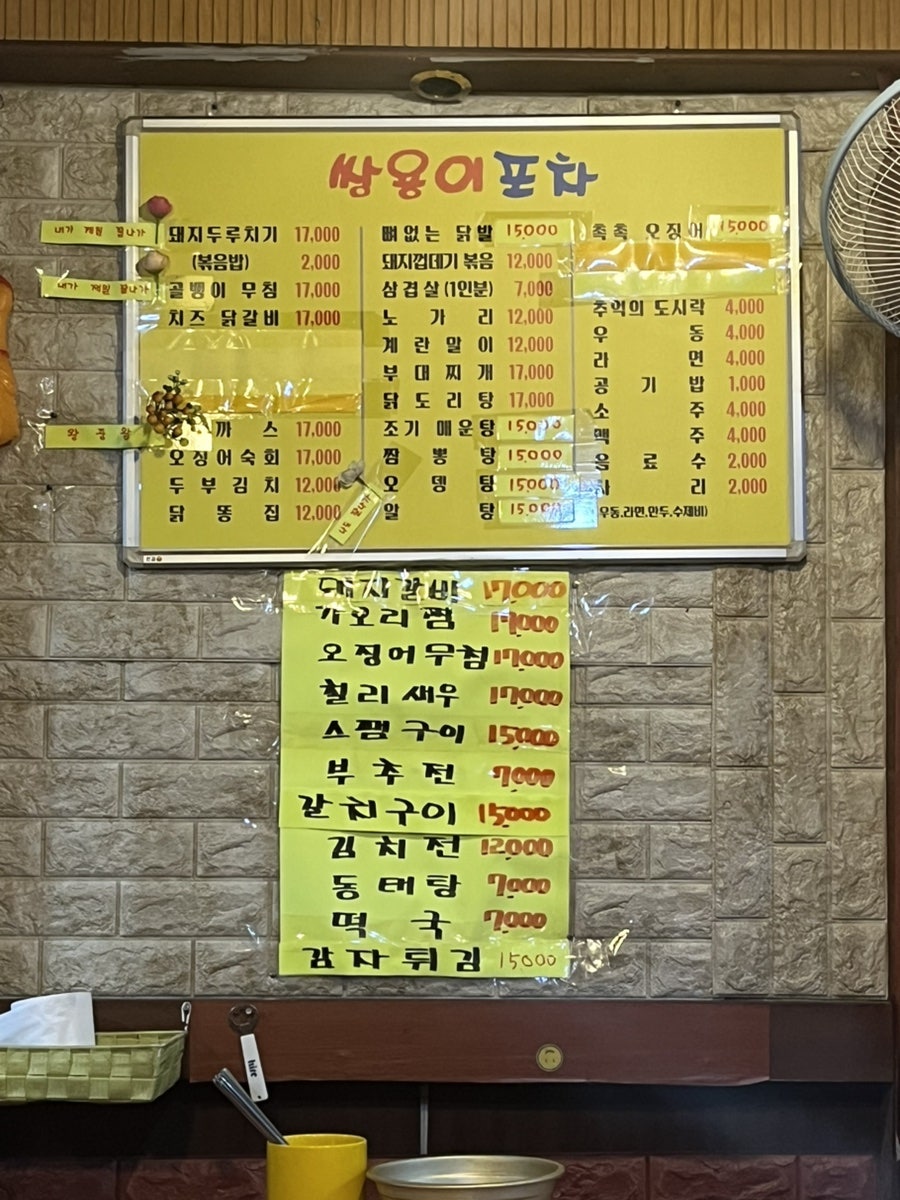 쌍용이포차
내가 제일 잘나가
돼지두루치기 17,000
(볶음밥) 2,000
내가 제일 잘나가
골뱅이 무침 17,000
치즈 닭갈비 17,000
왕중왕
까스 17,000
오징어숙회 17,000
두부김치 12,000
닭똥집 12,000
나도 잘나가
뼈없는 닭발 15,000
돼지껍데기 볶음 12,000
삼겹살 (1인분) 7,000
노가리 12,000
계란말이 12,000
부대찌개 17,000
닭도리탕 17,000
조기 매운탕 15,000
짬뽕탕 15,000
오뎅탕 15,000
알탕 15,000
촉촉 오징어 15,000
추억의 도시락 4,000
우동 4,000
라면 4,000
공기밥 1,000
소주 4,000
맥주 4,000
음료수 2,000
사리 2,000
우동,라면,만두,수제비)
돼지갈비 17,000
가오리찜 17,000
오징어무침 17,000
칠리새우 17,000
스팸구이 15,000
부추전 7,000
갈치구이 15,000
김치전 12,000
동태탕 7,000
떡국 7,000
감자튀김 15000
hite